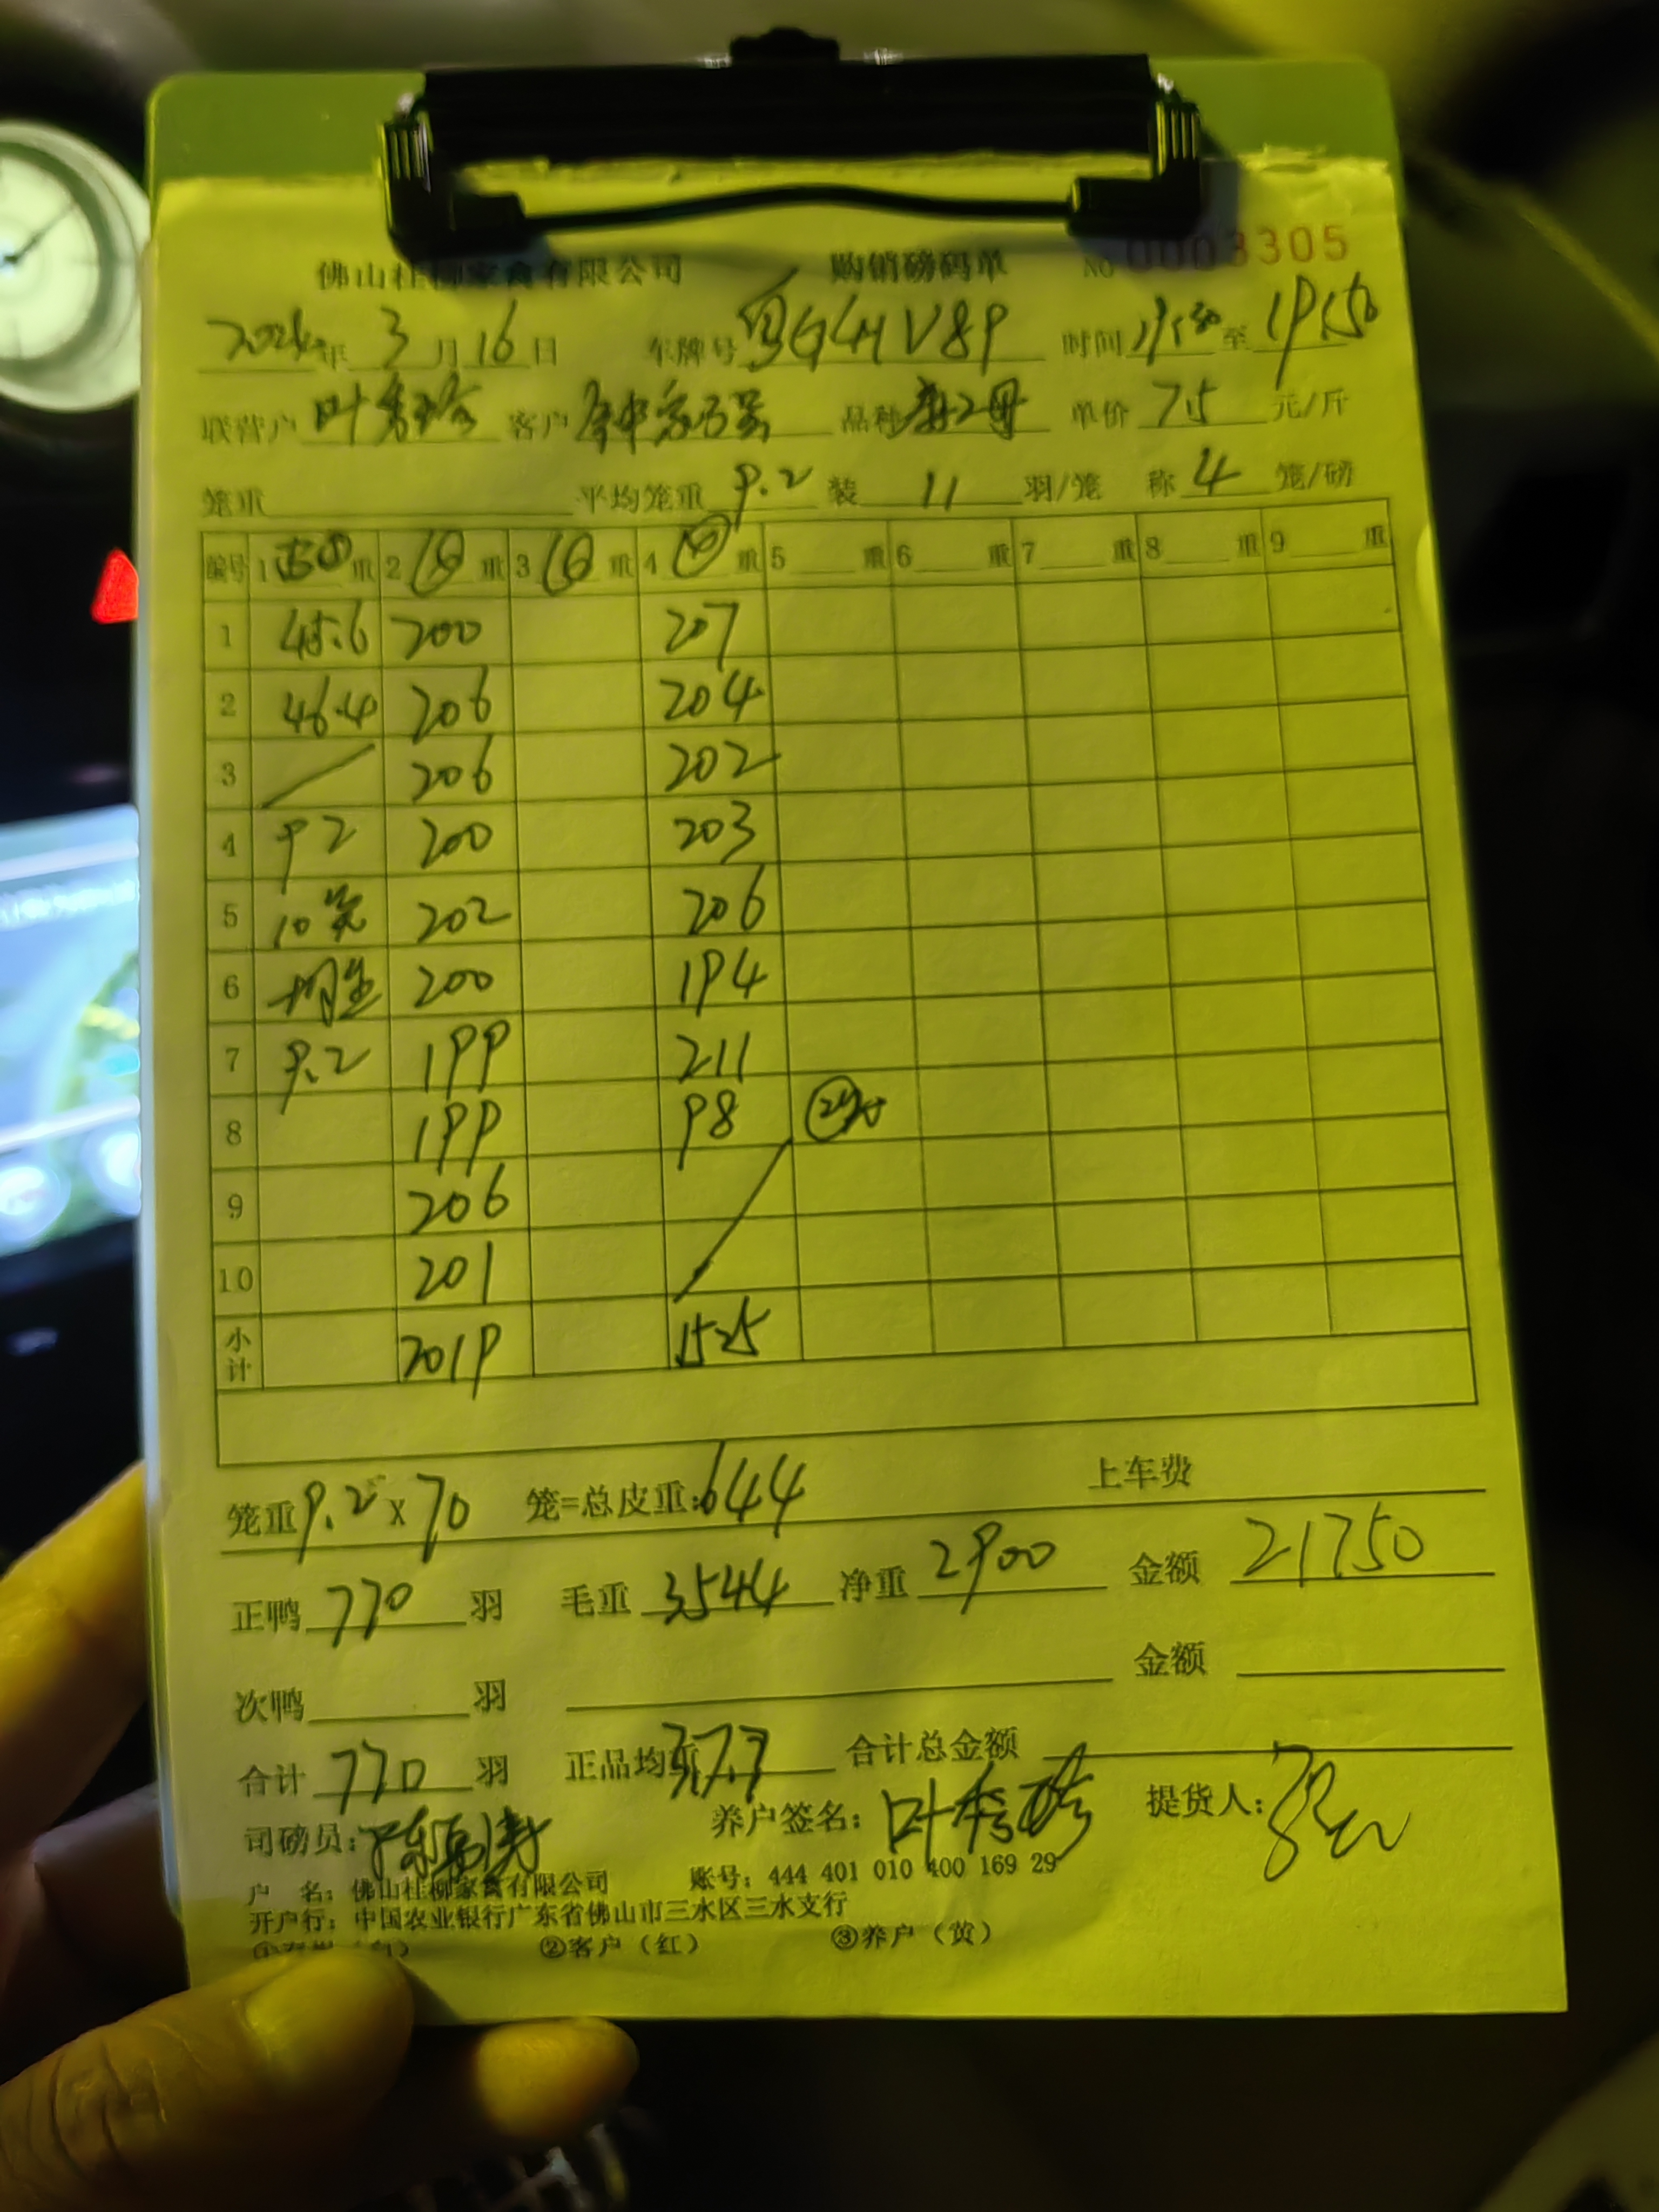 佛山桂柳家禽有限公司 购销磅码单 NO 0003305
年 3 月 16 日 车牌号 粤G4HV89 时间 至 19:50
联营户 叶秀珍 客户 品种 单价 7.5 元/斤
笼重 平均笼重 9.2 装 11 羽/笼 称 4 笼/磅
编号 1 重 2 重 3 重 4 重 5 重 6 重 7 重 8 重 9 重
1 45.6 200 207
2 46.4 206 204
3 206 202
4 92 200 203
5 10 202 206
6 200 194
7 9.2 199 211
8 199 98
9 206
10 201
小计 2019 1525
笼重 9.2 x 70 笼=总皮重: 644 上车费
正鸭 770 羽 毛重 3544 净重 2900 金额 21750
次鸭 羽 金额
合计 770 羽 正品均 3.77 合计总金额
司磅员: 养户签名: 叶秀珍 提货人:
户 名: 佛山桂柳家禽有限公司 账号: 444 401 010 400 169 29
开户行: 中国农业银行广东省佛山市三水区三水支行
②客户(红) ③养户(黄)